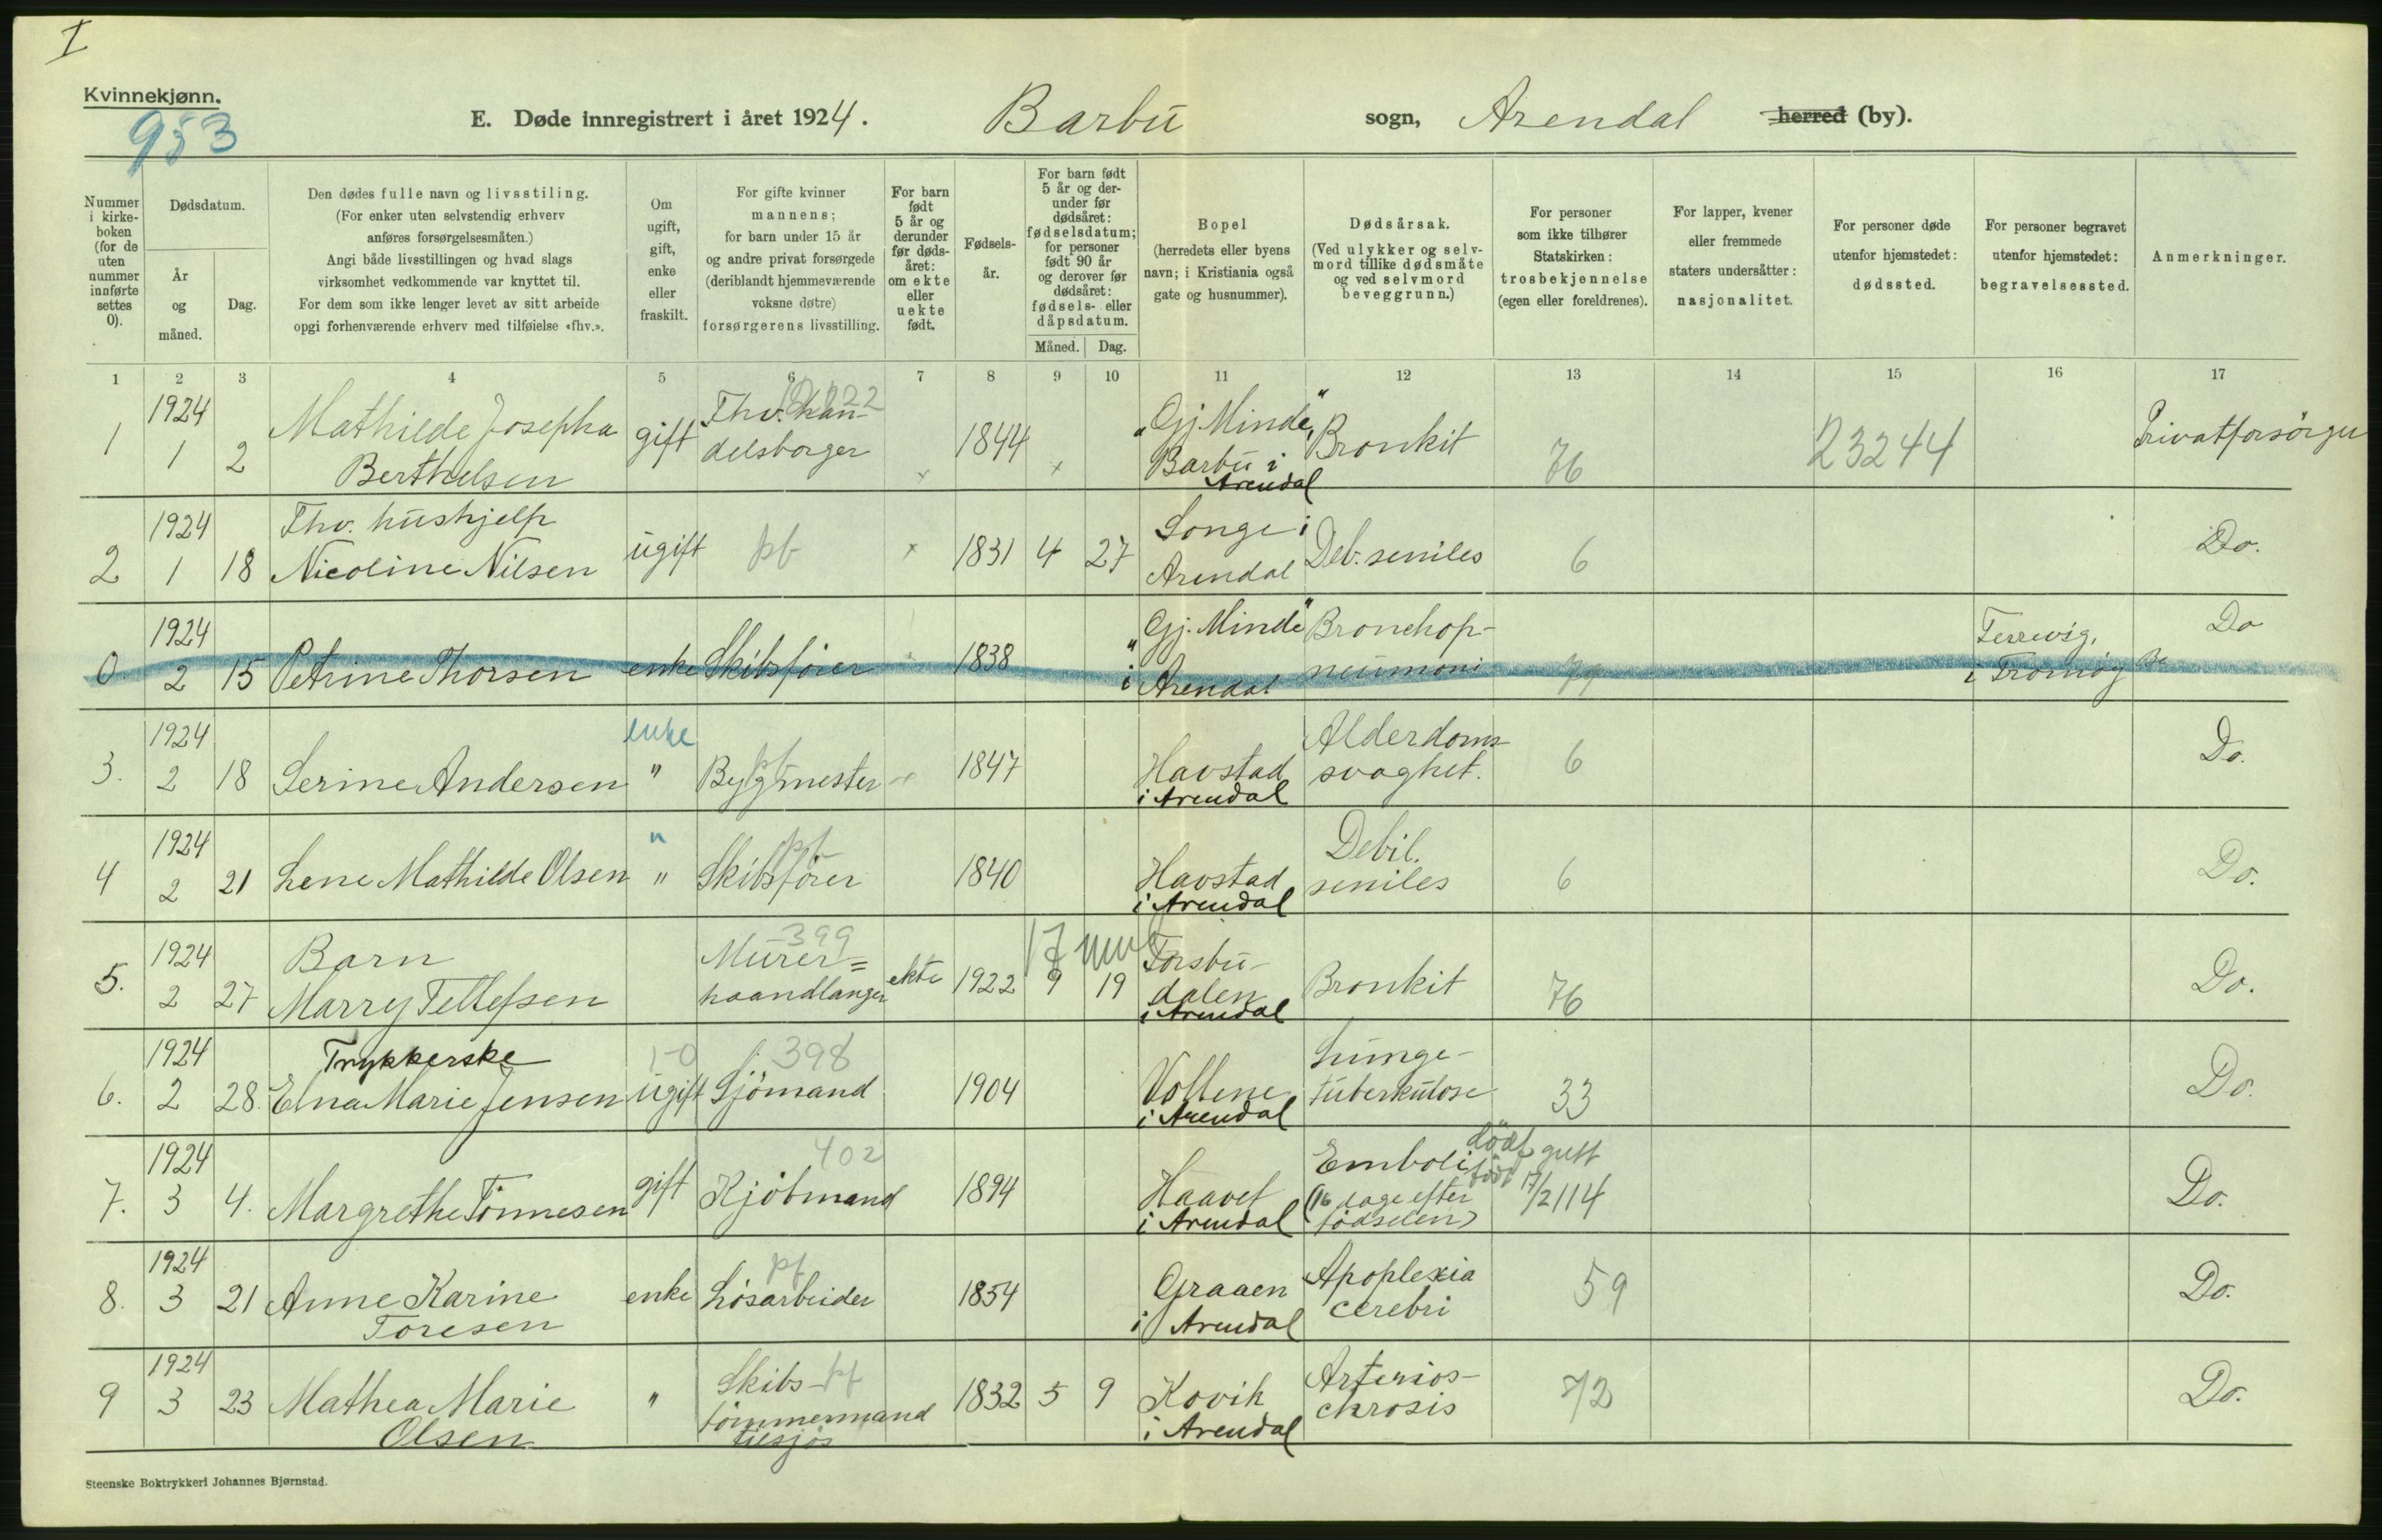 I
Kvinnekjønn.
953
E. Døde innregistrert i året 1924. Barbu sogn, Arendal herred (by).
Nummer i kirkeboken (for de uten nummer innførte settes 0).
Dødsdatum.
År og måned.
Dag.
Den dødes fulle navn og livsstiling.
(For enker uten selvstendig erhverv
anføres forsørgelsesmåten.)
Angi både livsstillingen og hvad slags
virksomhet vedkommende var knyttet til.
For dem som ikke lenger levet av sitt arbeide
opgi forhenværende erhverv med tilføielse «fhv.».
Om ugift, gift, enke eller fraskilt.
For gifte kvinner
mannens;
for barn under 15 år
og andre privat forsørgede
(deriblandt hjemmeværende
voksne døtre)
forsørgerens livsstilling.
For barn født 5 år og derunder før dødsåret: om ekte eller uekte født.
Fødselsår.
For barn født 5 år og derunder før dødsåret: fødselsdatum; for personer født 90 år og derover før dødsåret: fødsels- eller dåpsdatum.
Måned. Dag.
Bopel
(herredets eller byens
navn; i Kristiania også
gate og husnummer).
Dødsårsak.
(Ved ulykker og selv-
mord tillike dødsmåte
og ved selvmord
beveggrunn.)
For personer
som ikke tilhører
Statskirken:
trosbekjennelse
(egen eller foreldrenes).
For lapper, kvener
eller fremmede
staters undersåtter:
nasjonalitet.
For personer døde
utenfor hjemstedet:
dødssted.
For personer begravet
utenfor hjemstedet:
begravelsessted.
Anmerkninger.
1 2 3 4 5 6 7 8 9 10 11 12 13 14 15 16 17
1 1924 1 2 Mathilde Josepha Berthelsen gift Fhv. handelsborger x 1844 x "Gj. Minde", Barbu i Arendal Bronkit 76 23244 Privatforsørget
2 1924 1 18 Fhv. hushjelp Nicoline Nilsen ugift pf x 1831 4 27 Songe i Arendal Deb. seniles 6 Do.
0 1924 2 15 Petrine Thorsen enke Skibsfører 1838 "Gj. Minde" i Arendal Bronchopneumoni i Tromøy Do
3. 1924 2 18 Serine Andersen enke " Byggmester pf 1847 Havstad i Arendal Alderdomssvaghet. 6 Do.
4 1924 2 21 Lene Mathilde Olsen " " Skibsfører pf 1840 Havstad i Arendal Debil. seniles 6 Do.
5. 1924 2 27 Barn Marry Tellefsen 399 Murer=haandlanger ekte 1922 9 19 17 Torsbudalen i Arendal Bronkit 76 Do.
6. 1924 2 28. Trykkerske Elna Marie Jensen ugift 398 Sjømand 1904 Vollene i Arendal Lungetuberkulose 33 Do.
7. 1924 3 4. Margrethe Tønnesen gift 402 Kjøbmand 1894 Haavet i Arendal Emboli (16 dage efter fødselen) født gutt født 17/2 114 Do.
8. 1924 3 21 Anne Karine Toresen enke pf Løsarbeider 1854 Graaen i Arendal Apoplexia cerebri 59 Do.
9 1924 3 23 Mathea Marie Olsen " Skibs pf tømmermand tilsjøs 1832 5 9 Kovik i Arendal Arterioschrosis 72 Do.
Steenske Boktrykkeri Johannes Bjørnstad.